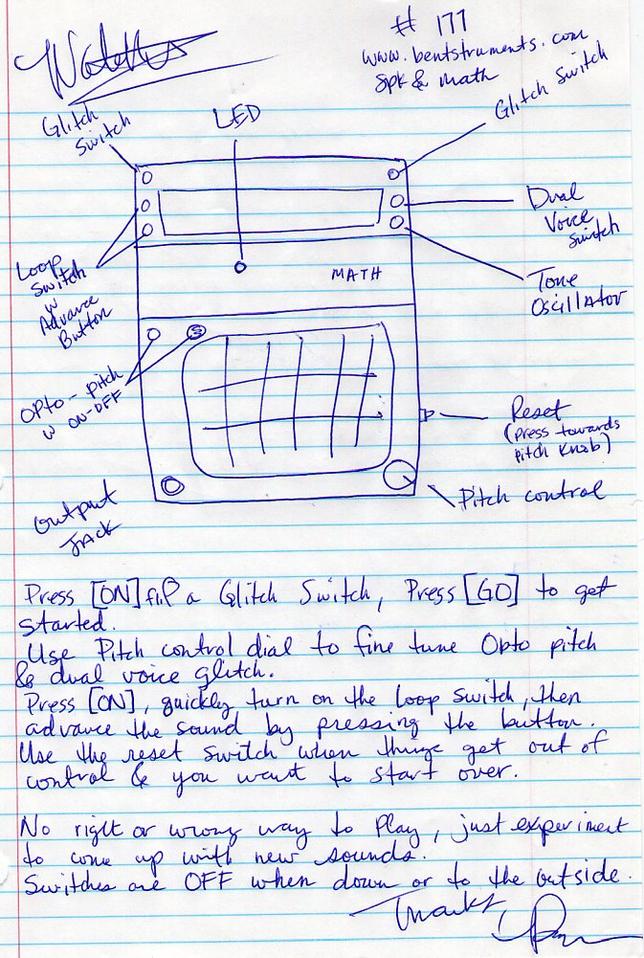 # 177
www.bentstruments.com
Spk & Math
Glitch
Switch
LED
Glitch Switch
Dual
Voice
Switch
Loop
Switch
w
Advance
Button
MATH
Tone
Oscillator
Opto-pitch
w ON-OFF
Reset
(press towards
pitch knob)
Output
Jack
Pitch control
Press [ON] flip a Glitch Switch, Press [GO] to get
started.
Use Pitch control dial to fine tune Opto pitch
& dual voice glitch.
Press [ON], quickly turn on the loop switch, then
advance the sound by pressing the button.
Use the reset switch when things get out of
control & you want to start over.
No right or wrong way to play, just experiment
to come up with new sounds.
Switches are OFF when down or to the outside.
Thanks,